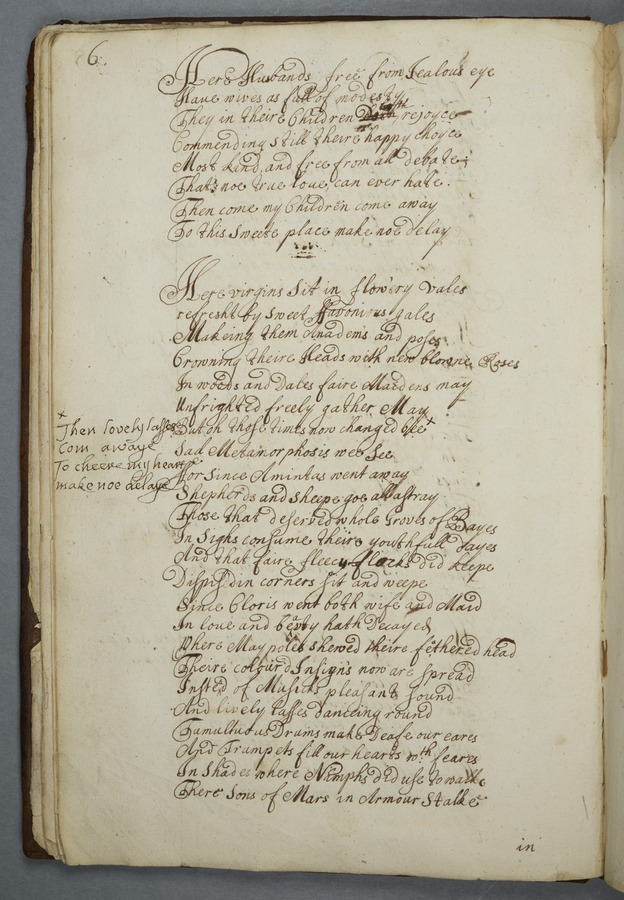 6.
Here Husbands free from Jealous eye
Have wives as full of modesty
They in theire Children both rejoyce
Commending still theire happy choyce
Most kind and free from all debate
That's noe true love can ever hate.
Then come my Children come away
To this Sweete place make noe delay
Here virgins Sit in flowery Vales
refresht by Sweet Favonious gales
Makeing them Anadems and poses
Crowning theire Heads with new blowne Roses
In woods and Dales faire Maidens may
Unfrighted freely gather May
x
Then lovely lasses
Com awaye
To cheere my heart
make noe delaye
But oh those times now changed bee x
Sad Metamorphosis wee See
For since Amintas went away
Shepherds and sheepe goe all astray
Those that deserved whole Groves of Bayes
In Sighs consume theire youthfull dayes
And that faire fleecy flocks did keepe
Dispised in corners sit and weepe
Since Cloris went both wife and Maid
In love and beauty hath Decayed
Where May poles shewed theire fethered head
Theire colour'd Insigns now are Spread
Insted of Musicks pleasant sound
And lively lasses danceing round
Tumultuous Drums make Deafe our eares
And Trumpets fill our hearts wth feares
In Shades where Nimphs did use to walke
There Sons of Mars in Armour Stalke
in